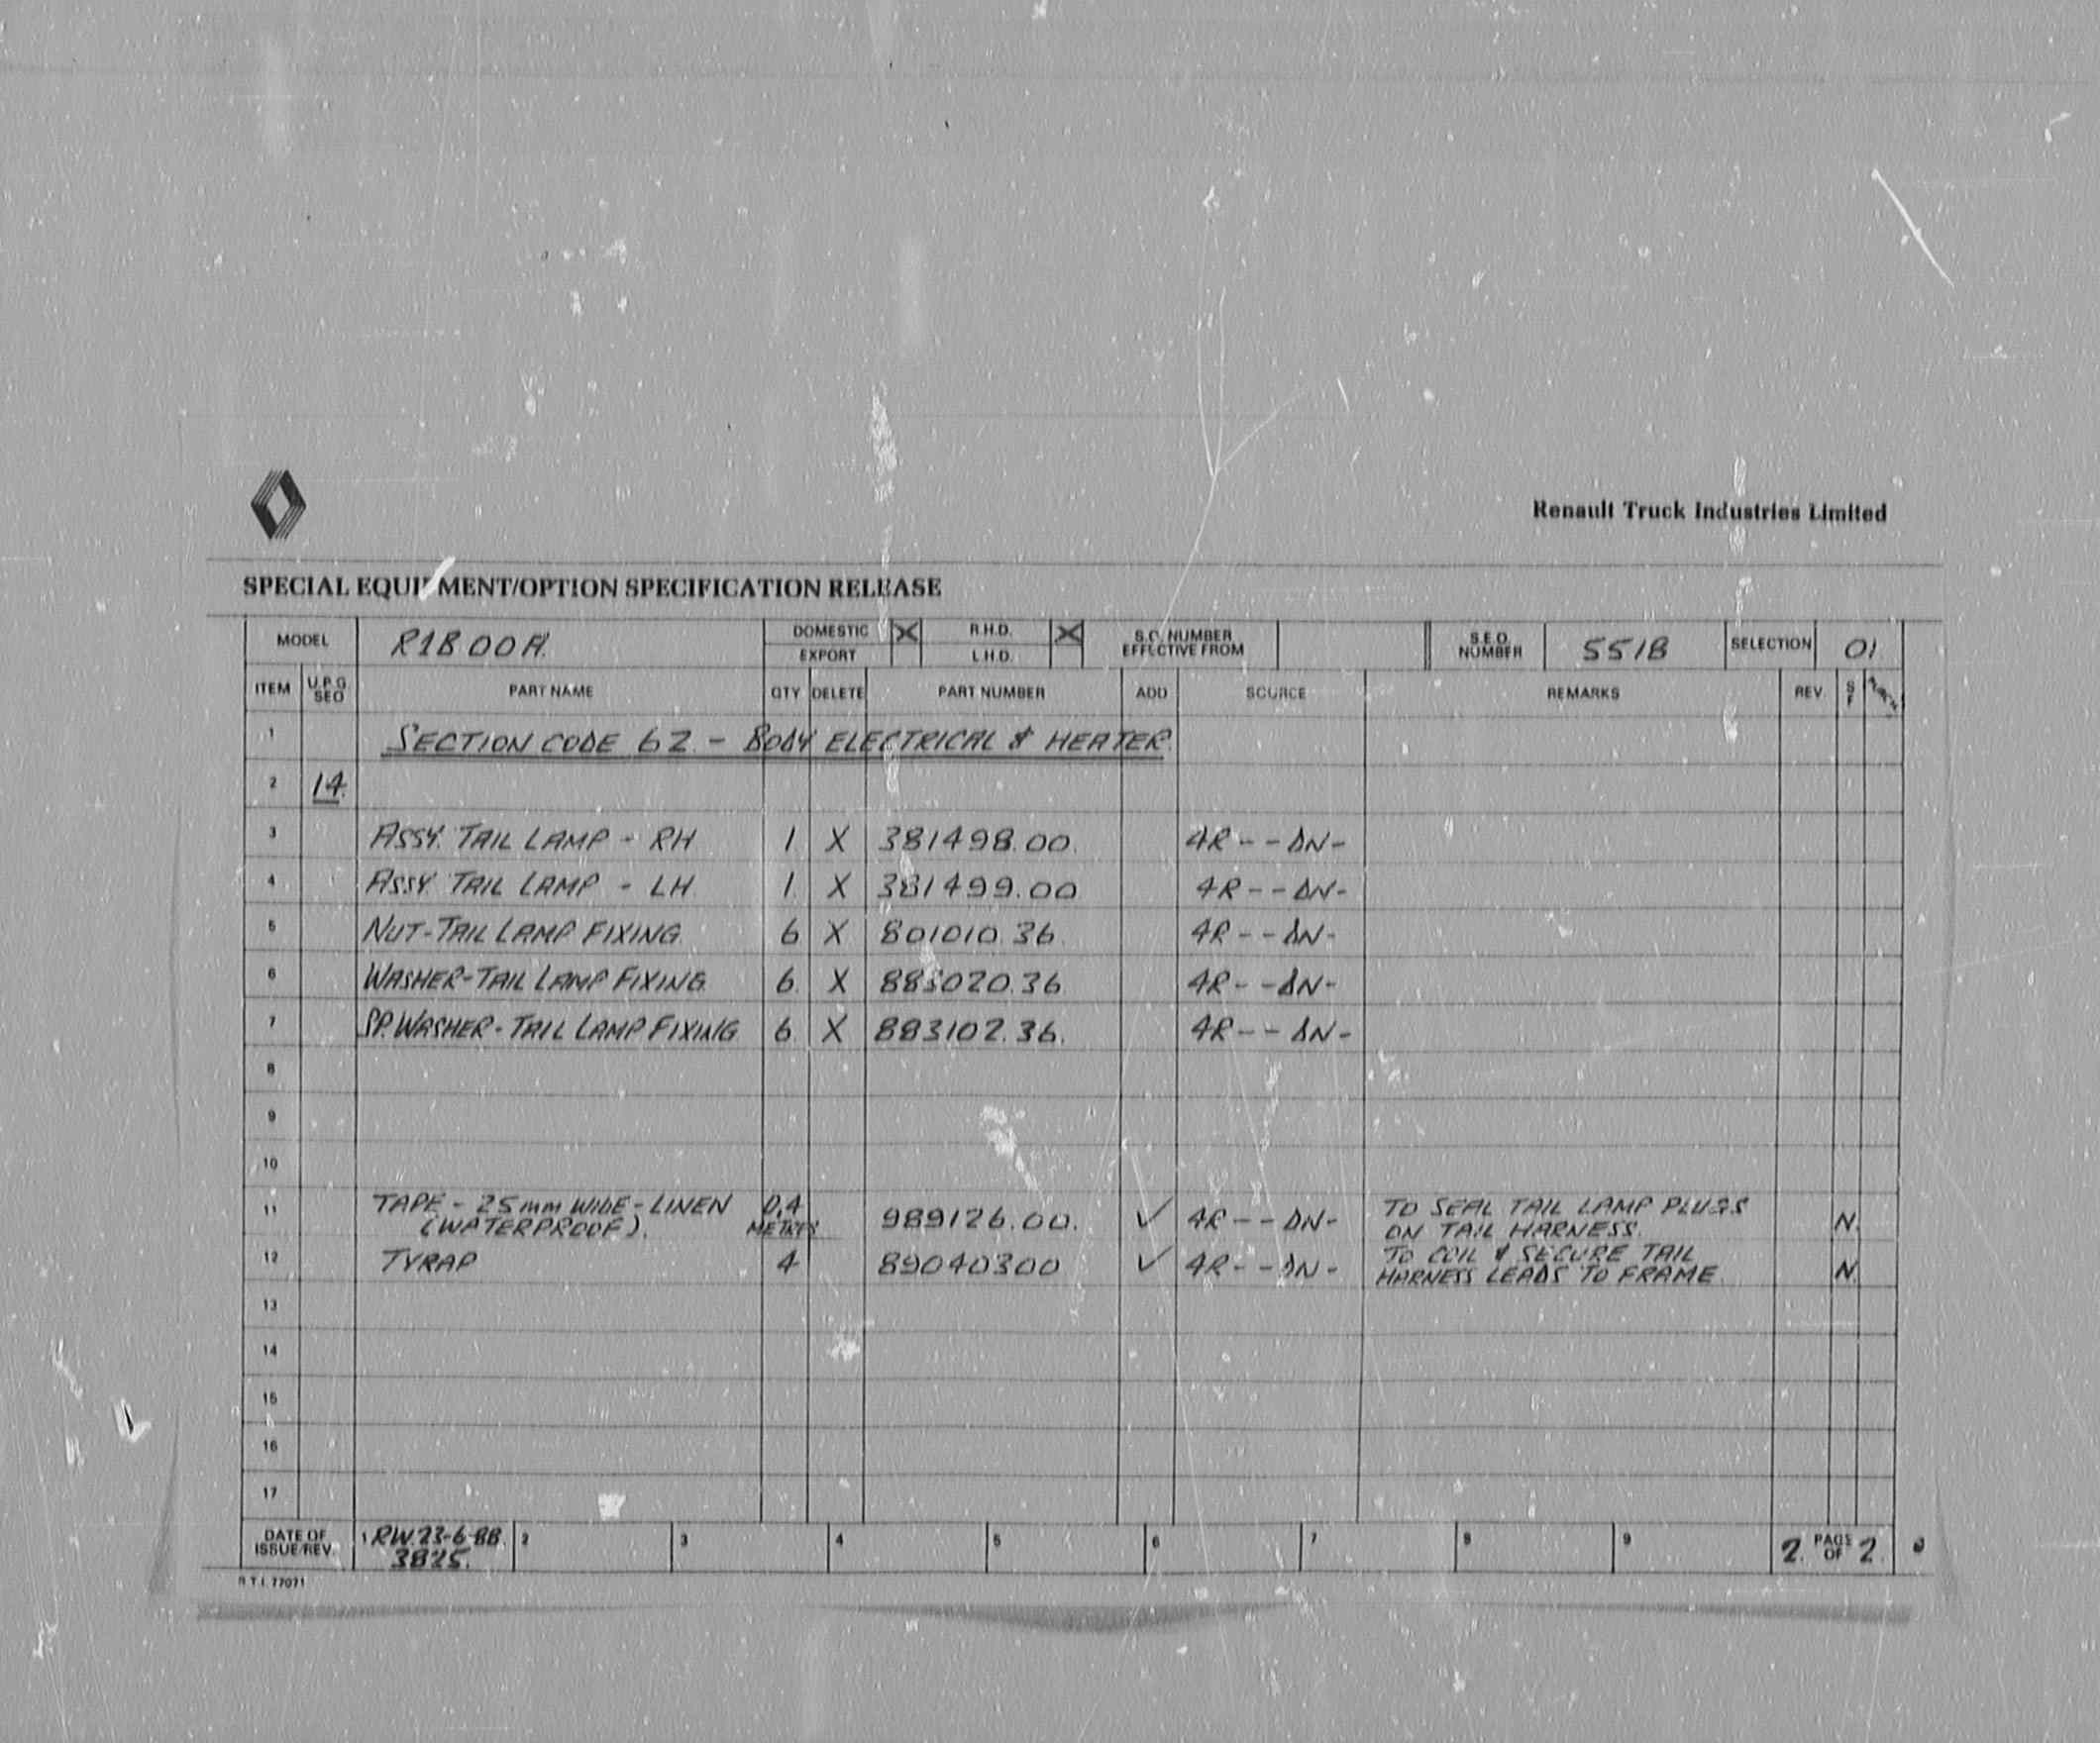 Renault Truck Industries Limited
SPECIAL EQUIPMENT/OPTION SPECIFICATION RELEASE
MODEL R1B00A. DOMESTIC X R.H.D. X S.O. NUMBER EFFECTIVE FROM S.E.O. NUMBER 551B SELECTION 01
EXPORT L.H.D.
ITEM U.P.G SEQ PART NAME QTY DELETE PART NUMBER ADD SOURCE REMARKS REV S F
1 SECTION CODE 62 - BODY ELECTRICAL & HEATER.
2 14.
3 ASSY. TAIL LAMP - RH 1 X 381498.00. 4R--DN-
4 ASSY. TAIL LAMP - LH 1. X 381499.00 4R--DN-
5 NUT-TAIL LAMP FIXING. 6 X 801010.36. 4R--DN-
6 WASHER-TAIL LAMP FIXING. 6. X 4R--DN-
7 SP. WASHER - TAIL LAMP FIXING 6. X 883102.36. 4R--DN-
8
9
10
11 TAPE - 25mm WIDE - LINEN (WATERPROOF). 0,4 METRES 989126.00. ✓ 4R--DN- TO SEAL TAIL LAMP PLUGS ON TAIL HARNESS. N.
12 TYRAP 4 89040300 ✓ 4R--DN- TO COIL & SECURE TAIL HARNESS LEADS TO FRAME. N.
13
14
15
16
17
DATE OF ISSUE/REV. 1 RW.23-6-88. 3825. 2 3 4 5 6 7 8 9 2. PAGE OF 2.
R.T.I. 77071